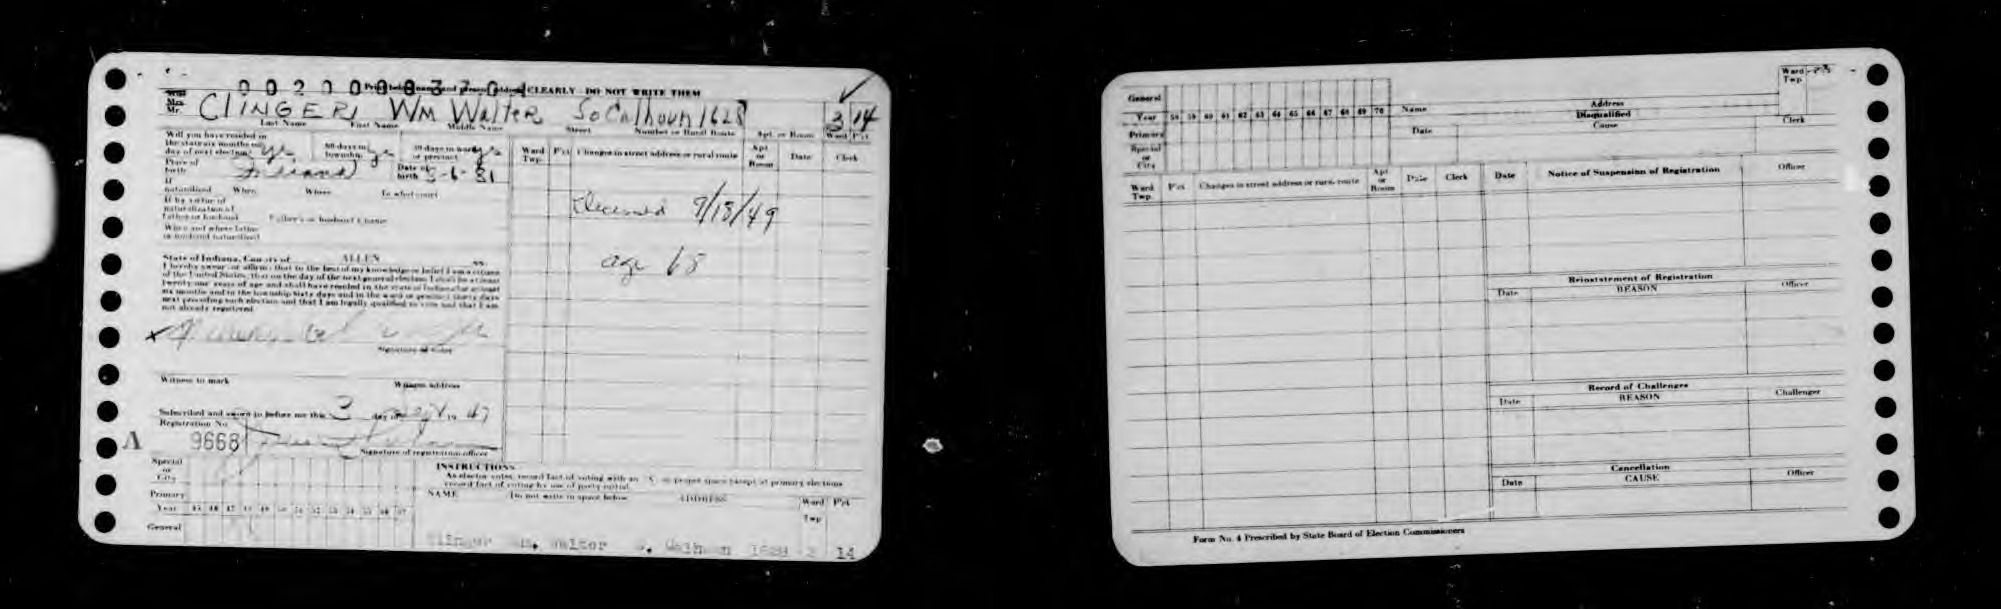 0020008370
Print CLEARLY - DO NOT WRITE THEM
Miss
Mrs.
Mr. CLINGER, WM Walter So Calhoun 1628 3 14
Last Name First Name Middle Name Street Number or Rural Route Apt. or Room Ward Pct.
Will you have resided in
the state six months on
day of next election? yes
60 days in
township yes
30 days in ward
or precinct yes
Place of
birth Indiana
Date of
birth 5-6-81
If
naturalized When Where In what court
If by virtue of
naturalization of
father or husband Father's or husband's name
When and where father
or husband naturalized
State of Indiana, County of ALLEN ss:
I hereby swear or affirm that to the best of my knowledge or belief I am a citizen
of the United States, that on the day of the next general election, I shall be at least
twenty-one years of age and shall have resided in the state of Indiana for at least
six months and in the township sixty days and in the ward or precinct thirty days
next preceding such election and that I am legally qualified to vote and that I am
not already registered.
x
Signature of Voter
Witness to mark Witness address
Subscribed and sworn to before me this 3 day of Sept 19 47
Registration No.
A 9668
Signature of registration officer
Ward
Twp. Pct. Changes in street address or rural route Apt.
or
Room Date Clerk
Deceased 9/18/49
age 68
Special
or
City
Primary
Year 45 46 47 48 49 50 51 52 53 54 55 56 57
General
INSTRUCTIONS
As elector votes, record fact of voting with an "X" in proper space except at primary elections
record fact of voting by use of party initial.
NAME Do not write in space below ADDRESS Ward Pct.
Twp.
Clinger Wm. Walter S. Calhoun 1628 3 14
General
Year 58 59 60 61 62 63 64 65 66 67 68 69 70
Primary
Special
or
City
Name Address Ward
Twp.
Disqualified
Date Cause Clerk
Ward
Twp. Pct. Changes in street address or rural route Apt.
or
Room Date Clerk
Date Notice of Suspension of Registration Officer
Reinstatement of Registration
Date REASON Officer
Record of Challenges
Date REASON Challenger
Cancellation
Date CAUSE Officer
Form No. 4 Prescribed by State Board of Election Commissioners